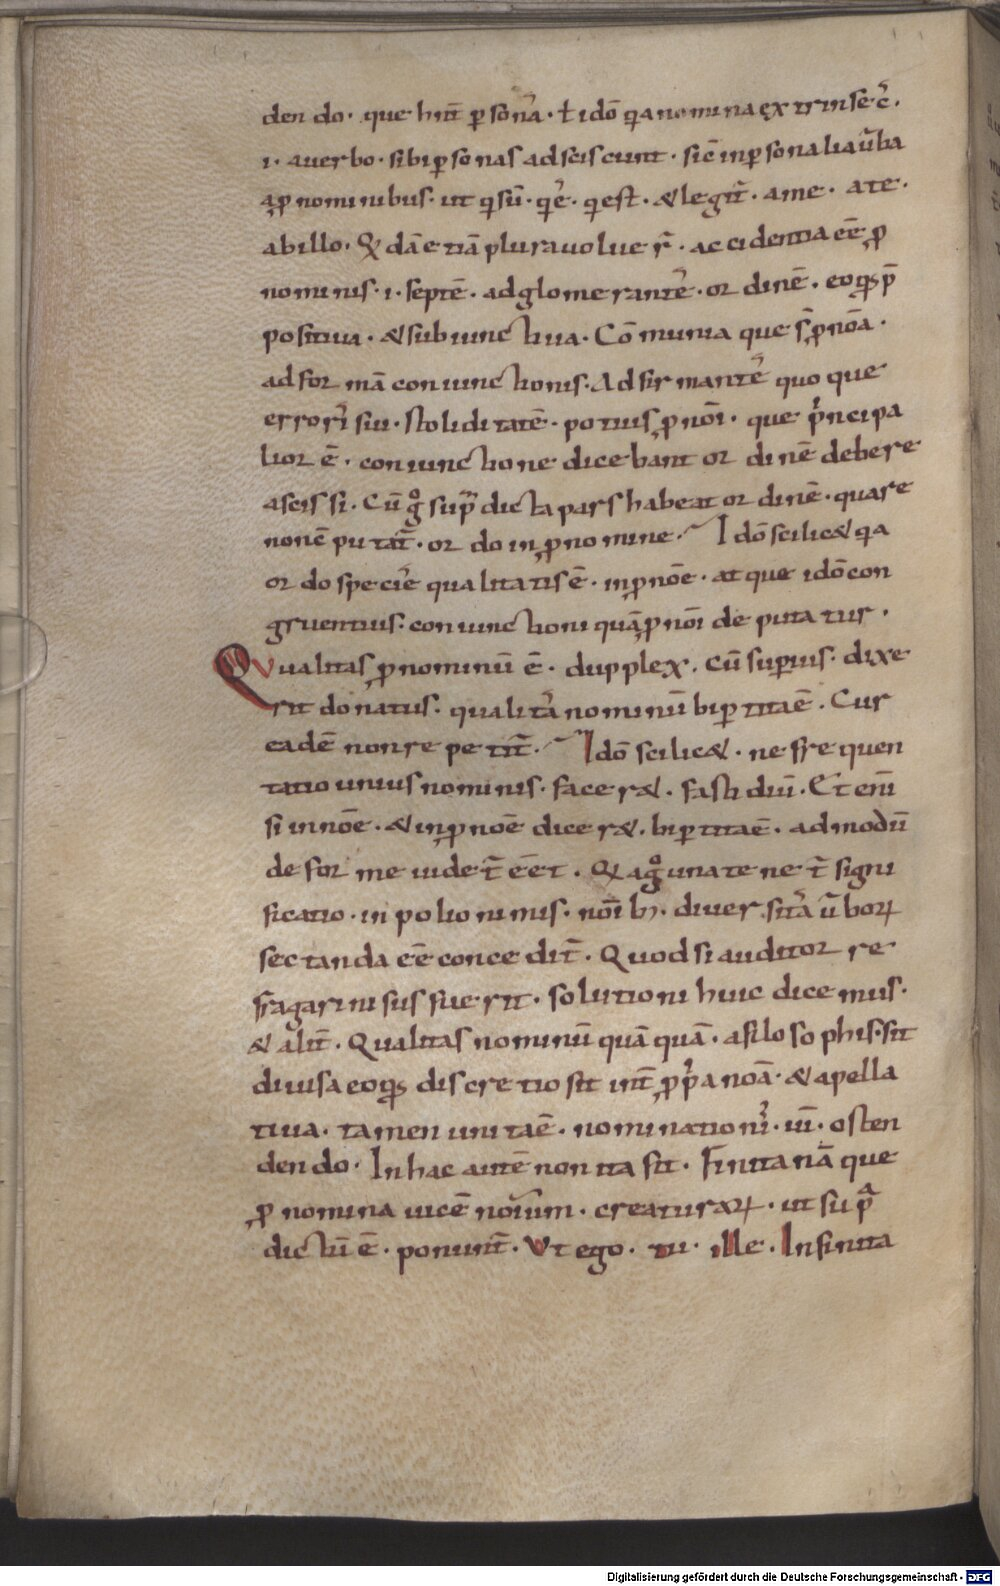 den do · que hnt̄ ꝑsonā · ł idō qͥa nomina extrinsec̄ ·
·i· auerbo · sibi ꝑsonas adsciscunt · sic̄ inꝑsonalia ūba
a ꝓnominibus · ut qͥ sū · qͥ ē · qͥ est · & legit̄ · ame · ate ·
abillo · Qdā etiā plura uoluer̄ · accidentia eē ꝓ
nominis · i · septē · adglomerantē · ordinē · eoqd p̄
positiua · & subiunctiua · Cōmunia que s̄ ꝓnōa ·
ad formā coniunctionis · Adfirmantē quoque
errori siu · stoliditatē · potius ꝓnōi · que pͥncipa
lior ē · coniunctione dicebant ordinē debere
ascissi · Cū gͦ supͣ dicta pars habeat ordinē · quare
non ē putat̄ · ordo in ꝓnomine · Idō scilic& qͥa
ordo speciē qualitatis ē · in ꝓnōe · atque idō con
gruentius · coniunctioni quā ꝓnōi deputatur ·
Qualitas ꝓnominū ē · dupplex · Cū superius · dixe
rit donatus · qualitā nominū biꝑtitā ē · Cur
eadē non repetit̄ · Idō scilic& · ne frequen
tatio unius nominis · facer& · fastidiū · Et enī
si in nōe · & in ꝓnōe dicer& · biꝑtitā ē · admodū
deforme uidet̄ eēt · Q agͦ una tenet̄ signi
ficatio · in polionimis · nōiƀ · diuersitā ūborꝝ
sectanda eē concedit̄ · Quod si auditor re
fragari nisus fuerit · solutioni huic dicemus ·
& alit̄ · Qualitas nominū quāquā · afilosophis · sit
diuisa eoqd discretio sit int̄ ꝓpͥa nōa · & apella
tiua · tamen unitā ē · nominationi · ui · osten
dendo · In hac autē non ita sit · Finita nāque
ꝓnomina uicē noīum · creaturarꝝ · ut supͣ
dictū ē · ponunt̄ · Vt ego · tu · ille · Infinita
Digitalisierung gefördert durch die Deutsche Forschungsgemeinschaft - DFG